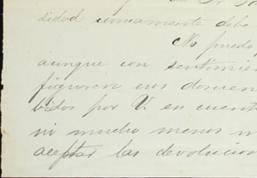 sidad unicamente debo
No puedo
aunque con sentimie
figuran sus descuen
bidos por V. en cuenta
ni mucho menos
aceptar las devolucion